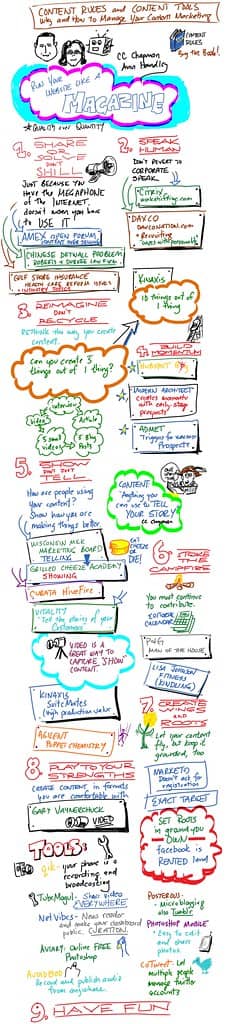 CONTENT RULES and CONTENT TOOLS
Why and How to Manage Your Content Marketing
CC Chapman
Ann Handley
CONTENT
RULES
Buy the Book!
RUN YOUR
WEBSITE LIKE A
MAGAZINE
★ QUALITY over QUANTITY
1. SHARE
OR
SOLVE
DON'T
SHILL
JUST BECAUSE YOU
HAVE THE MEGAPHONE
OF THE INTERNET,
doesn't mean you have
to USE IT
AMEX OPEN FORUM
CHINESE DRYWALL PROBLEM
GULF SHORE INSURANCE
HEALTH CARE REFORM ISSUES
2. SPEAK
HUMAN
DON'T REVERT TO
CORPORATE
SPEAK
CITRIX
DAXCO
DAXCONATION.com
• Recruiting
KINAXIS
10 things out of
1 thing?
3. REIMAGINE
DON'T
RECYCLE
RETHINK the way you create
content.
Can you create 5
things out of 1 thing?
Interview
Video
Article
5 small
videos
5 Blog
Posts
4. BUILD
MOMENTUM
HUBSPOT
MODERN ARCHITECT
Prospects
5. SHOW
DON'T JUST
TELL
How are people using
your content?
Show how you are
making things better.
WISCONSIN MILK
MARKETING BOARD
TELLING
GRILLED CHEESE ACADEMY
SHOWING
EAT
CHEESE
OR
DIE!
CURATA HIVEFIRE
VITALITY
"Tell the story of your
Customers"
VIDEO IS A
GREAT WAY TO
CAPTURE, SHOW
CONTENT.
KINAXIS
SUITEMATES
(high production value
AGILENT
PUPPET CHEMISTRY
CONTENT
"Anything you
can use to TELL
YOUR STORY"
CC Chapman
6. STOKE
THE
CAMPFIRE
You must continue
to contribute.
EDITORIAL
CALENDAR
P&G
MAN OF THE HOUSE
LISA JOHNSON
FITNESS
(KINDLING)
7. CREATE
WINGS
AND
ROOTS
Let your content
fly, but keep it
grounded, too
MARKETO
Don't ask for
registration
EXACT TARGET
SET ROOTS
in ground you
OWN
facebook is
RENTED land!
8. PLAY TO YOUR
STRENGTHS
CREATE CONTENT in formats
you are comfortable with
GARY VAYNERCHUCK
VIDEO
TOOLS:
qik: your phone is a
recording and
broadcasting
TubeMogul: Share video
EVERYWHERE
NetVibes: News reader
and make your dashboard
public CURATION
AVIARY: Online FREE
Photoshop
AUDIOBOO
Record and publish audio
from anywhere.
POSTEROUS:
• Microblogging
also Tumblr
PHOTOSHOP MOBILE
• Easy to edit
and share
photos
CoTweet: Let
multiple people
manage twitter
accounts
9. HAVE FUN